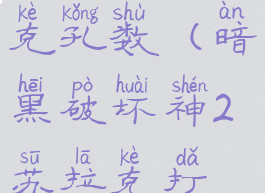 kè kǒng shù àn
克孔数(暗
hēi pò huài shén
黑破坏神2
sū lā kè dǎ
苏拉克打